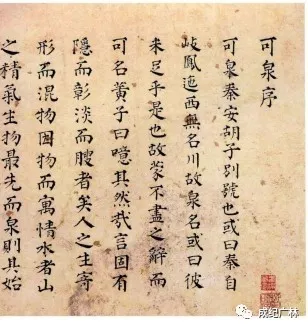 可泉序
可泉秦安胡子別號也或曰秦自
岐鳳迤西無名川故泉名或曰彼
未足乎是也故蒙不盡之辭而
可名黃子曰噫其然哉言固有
隱而彰淡而腴者矣人之主寄
形而混物因物而寓情水者山
之精氣生物最先而泉則其始
成纪广林